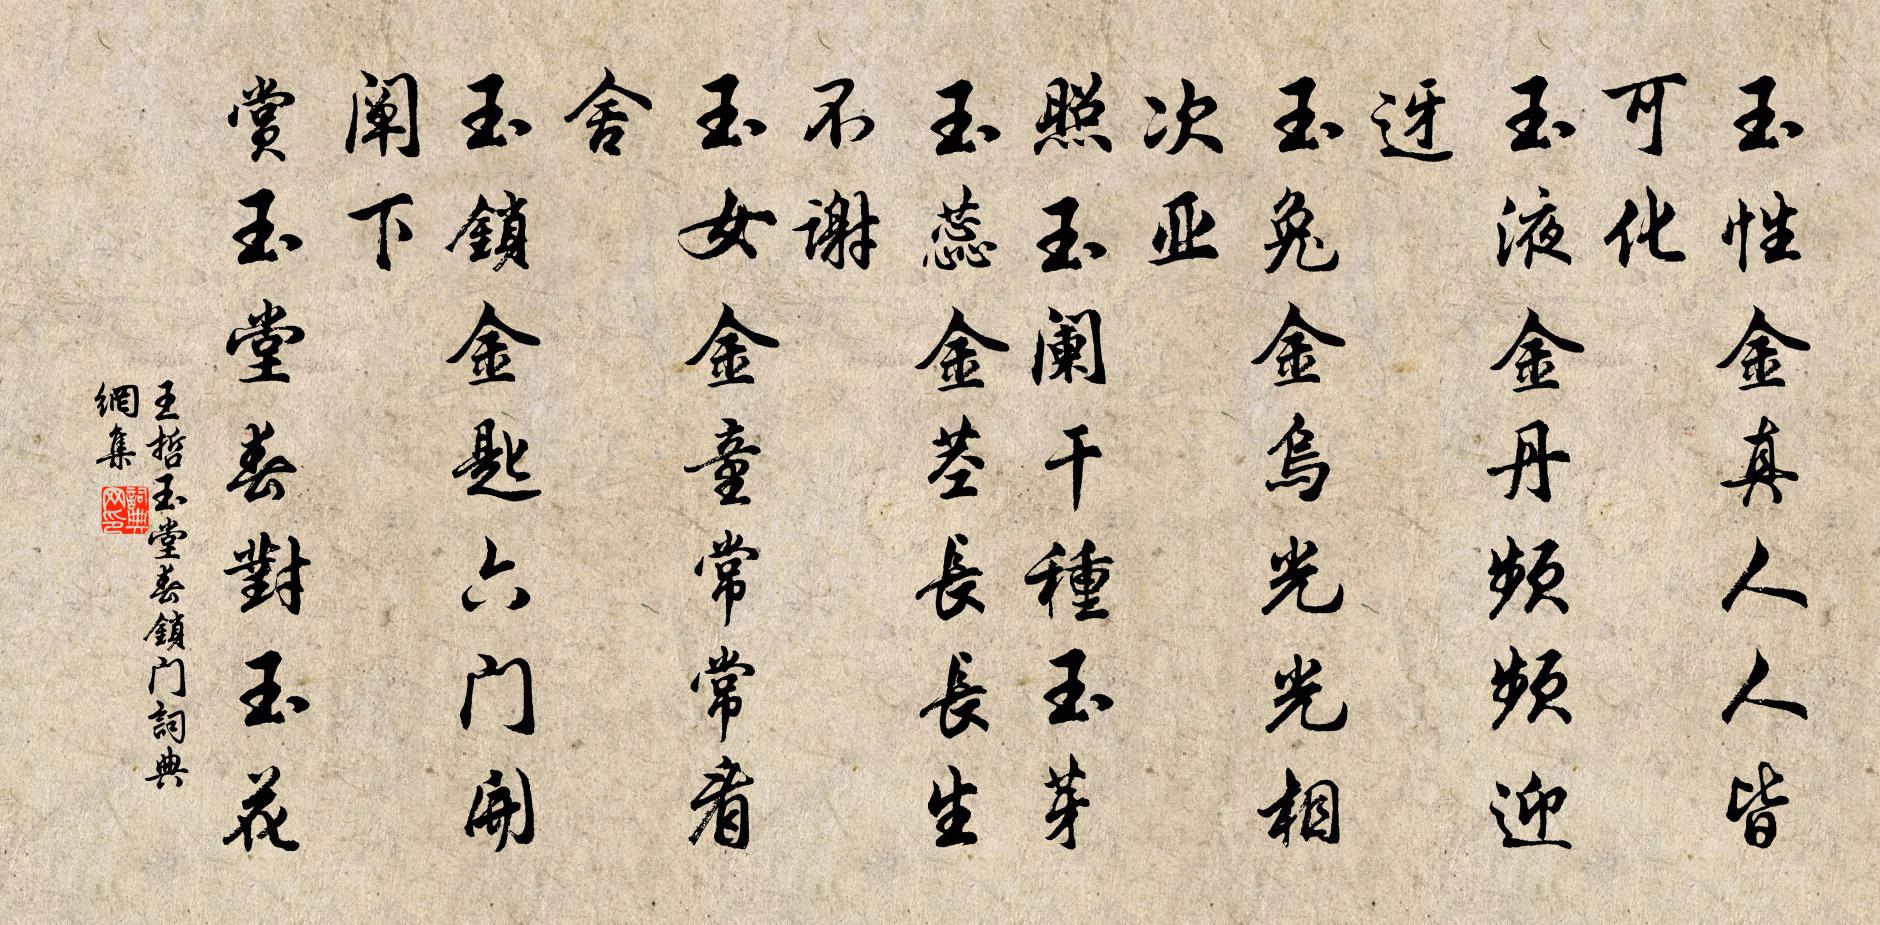 玉性金真人人皆
可化
玉液金丹频频迎
迓
玉兔金烏光光相
次亚
照玉阑干種玉芽
玉蕊金茎長長生
不谢
玉女金童常常看
舍
玉鎖金匙六门開
阐下
赏玉堂春對玉花
王哲玉堂春鎖门詞典
網集
詞典
网印